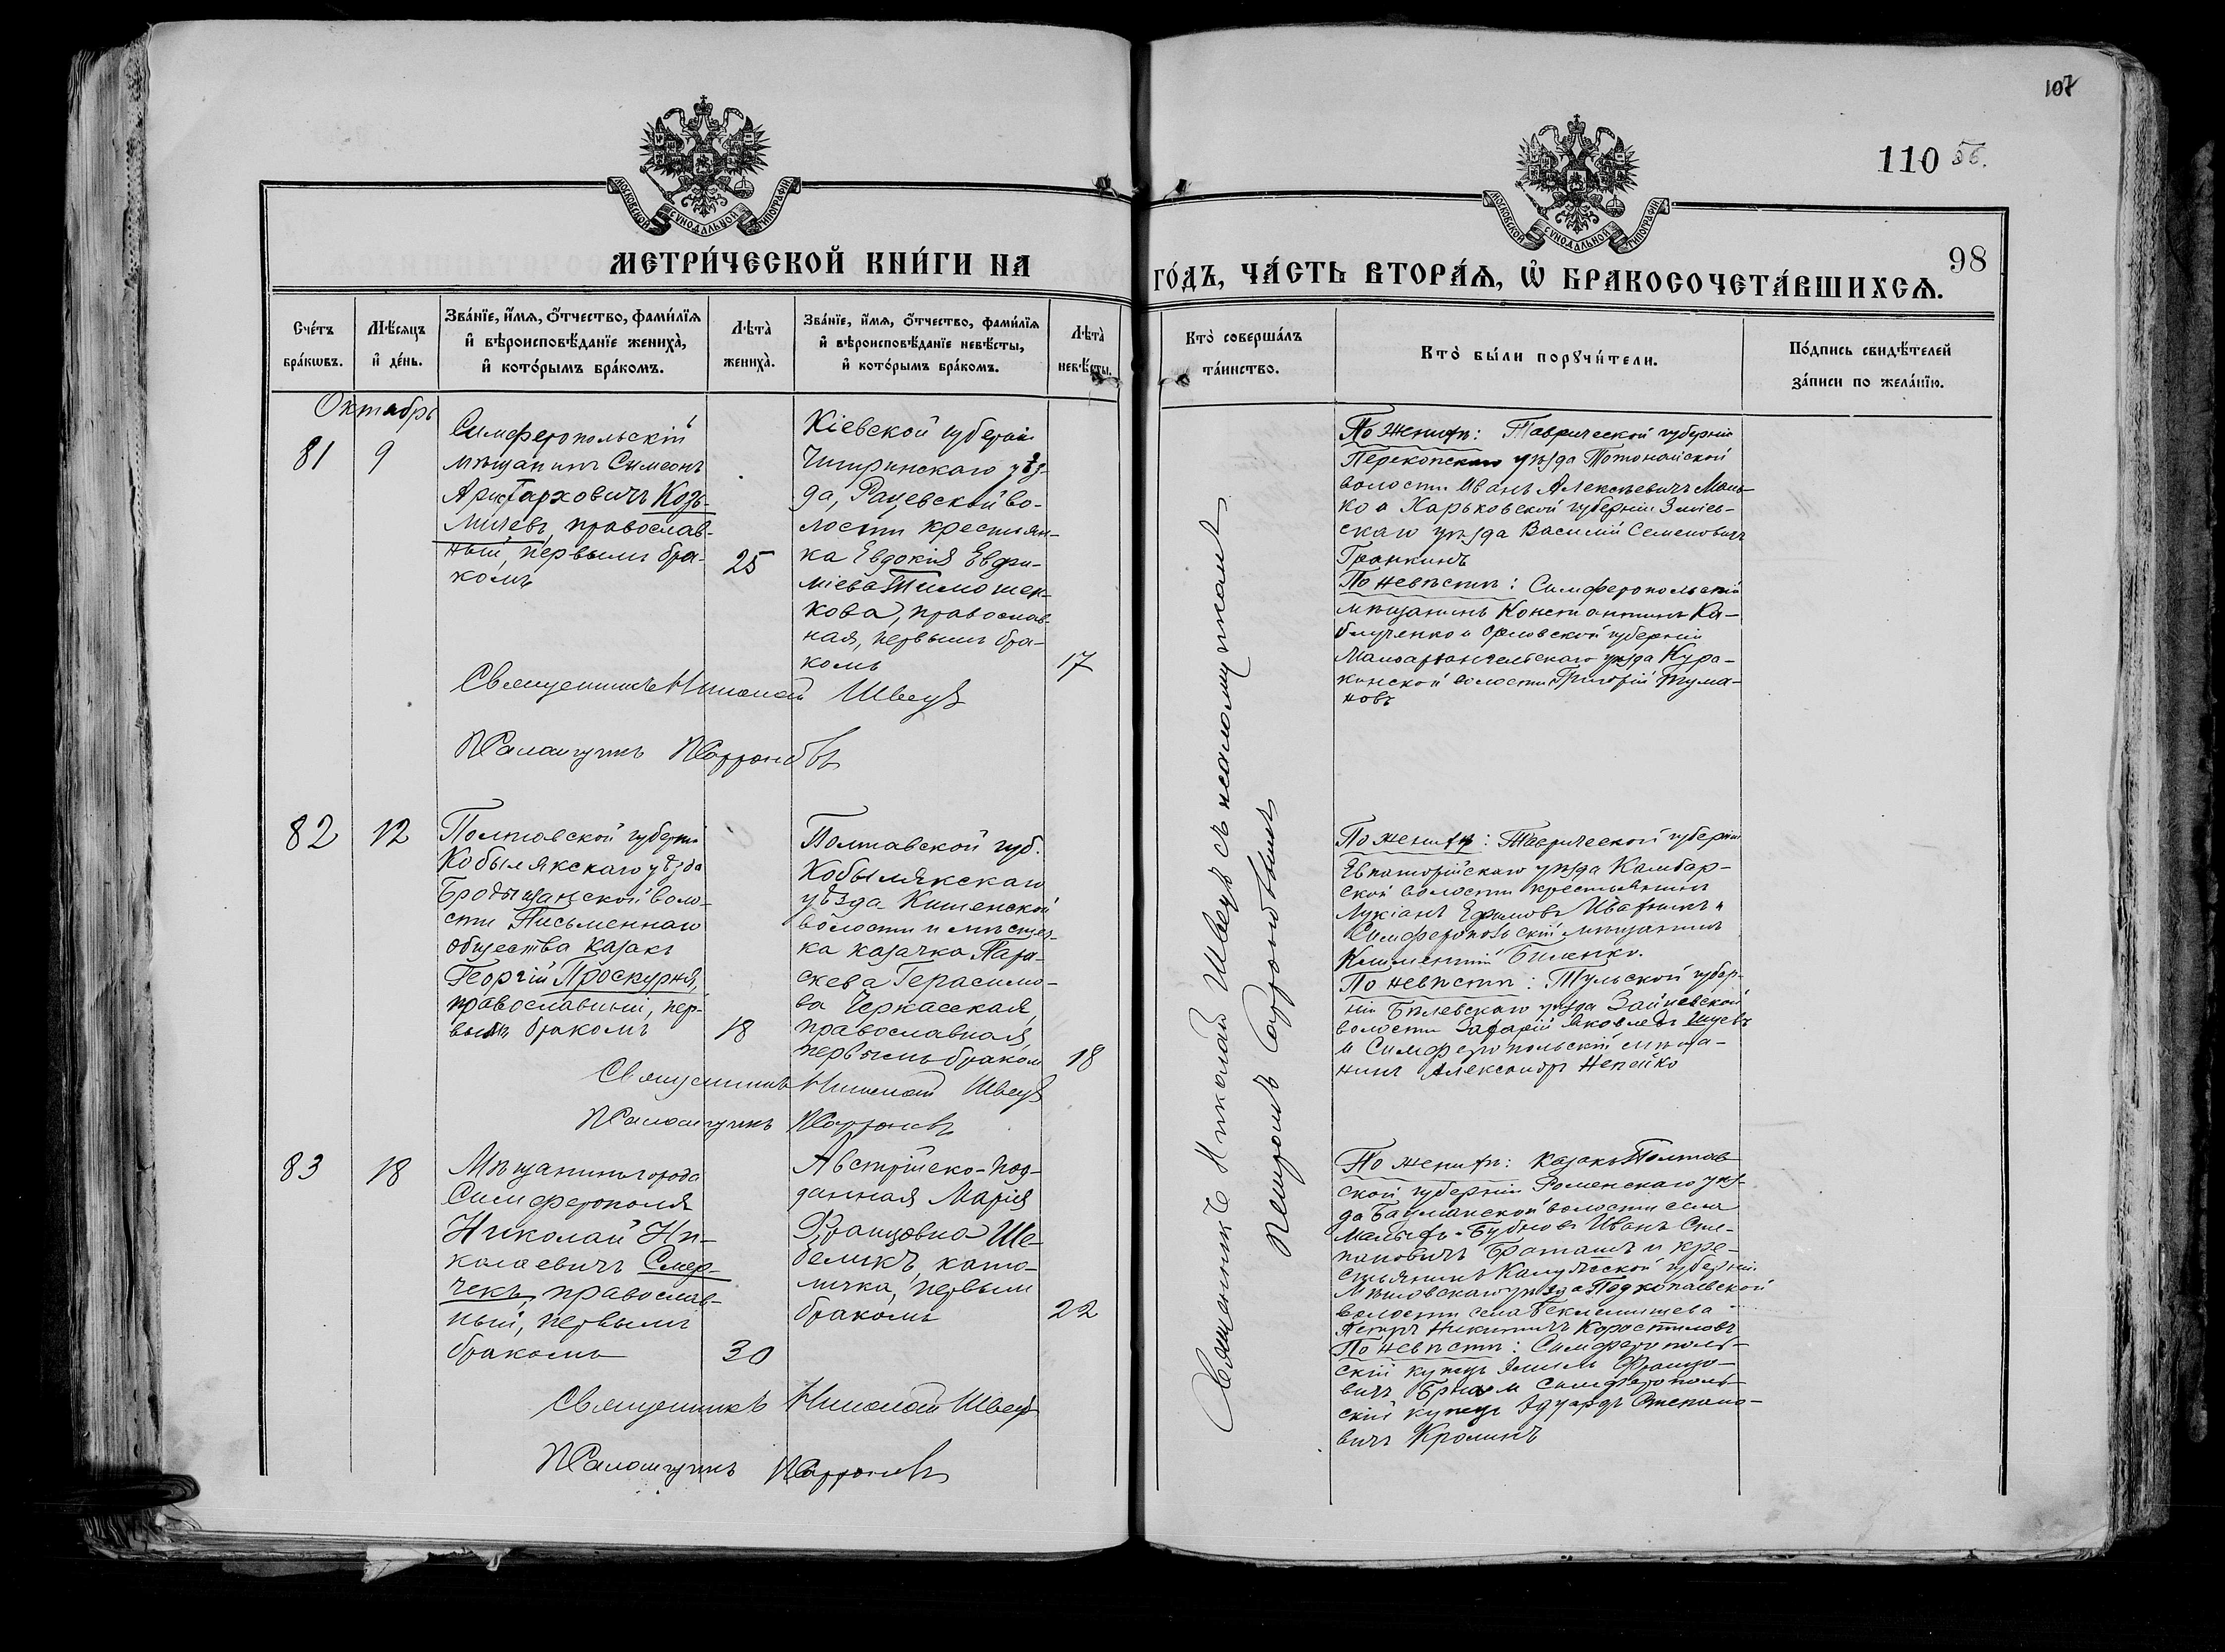 107
110 56.
98
МОСКОВСКОЙ СУНОДАЛЬНОЙ ТИПОГРАФІИ
МОСКОВСКОЙ СУНОДАЛЬНОЙ ТИПОГРАФІИ
МЕТРИ́ЧЕСКОЙ КНИ́ГИ НА
ГО́ДЪ, ЧА́СТЬ ВТОРА́Ѧ, Ѽ БРАКОСОЧЕТА́ВШИХСѦ.
Сче́тъ
бра́кѡвъ.
Мѣ́сѧцъ
и҆ де́нь.
Зва́нїе, и҆́мѧ, ѻ҆́тчество, фами́лїѧ
и҆ вѣроисповѣ́данїе жениха̀,
и҆ кото́рымъ бра́комъ.
Лѣта̀
жениха̀.
Зва́нїе, и҆́мѧ, ѻ҆́тчество, фами́лїѧ
и҆ вѣроисповѣ́данїе невѣ́сты,
и҆ кото́рымъ бра́комъ.
Лѣта̀
невѣ́сты.
Кто̀ соверша́лъ
та́инство.
Кто̀ бы́ли порꙋчи́тели.
По́дпись свидѣ́телей
за́писи по жела́нїю.
Октябрь
81
9
Симферопольскій
мѣщанинъ Симеонъ
Аристарховичъ Козь-
мичевъ, православ-
ный, первымъ бра-
комъ
25
Кіевской губерніи
Чигиринскаго уѣз-
да, Рацевской во-
лости крестьян-
ка Евдокія Евфи-
міева Тимошен-
кова, православ-
ная, первымъ бра-
комъ
17
Священникъ Николай Швецъ
Псаломщикъ П.
По женихѣ: Таврической губерніи
Перекопскаго уѣзда Тотонайской
волости Иванъ Алексѣевичъ Мань-
ко и Харьковской губерніи Зміев-
скаго уѣзда Василій Семеновичъ
Гранкинъ
По невѣстѣ: Симферопольскій
мѣщанинъ Константинъ Ка-
блученко и Орловской губерніи
Малоархангельскаго уѣзда Кура-
кинской волости Григорій Тума-
новъ
82
12
Полтавской губерніи
Кобылякскаго уѣзда
Бродщанской воло-
сти Письменнаго
общества казакъ
Георгій Проскурня,
православный, пер-
вымъ бракомъ
18
Полтавской губ.
Кобылякскаго
уѣзда Кишенской
волости и мѣстеч-
ка казачка Пара-
скева Герасимо-
ва Черкасская,
православная,
первымъ бракомъ
18
Священникъ Николай Швецъ
Псаломщикъ П.
По женихѣ: Таврической губерніи
Евпаторійскаго уѣзда Камбар-
ской волости крестьянинъ
Лукіанъ Ефимовъ и
Симферопольскій мѣщанинъ
Климентій Биленко.
По невѣстѣ: Тульской губер-
ніи Бѣлевскаго уѣзда Зайцевской
волости Захарій Яковлевъ
и Симферопольскій мѣща-
нинъ Александръ Непейко
83
18
Мѣщанинъ города
Симферополя
Николай Ни-
колаевичъ Смер-
чекъ, православ-
ный, первымъ
бракомъ
30
Австрійско-под-
данная Марія
Францовна Ше-
беликъ, като-
личка, первымъ
бракомъ
22
Священникъ Николай Швецъ
Псаломщикъ П.
По женихѣ: казакъ Полтав-
ской губерніи Роменскаго уѣз-
да волости села
Малыхъ-Бубновъ Иванъ Сте-
пановичъ Браташъ и кре-
стьянинъ Калужской губерніи
Мещовскаго уѣзда Подкопаевской
волости села Беклемищева
Петръ Никитичъ Коростилевъ
По невѣстѣ: Симферополь-
скій купецъ Эмиль Францо-
вичъ и Симферополь-
скій купецъ Эдуардъ Степано-
вичъ Кроликъ
Священникъ Николай Швецъ съ псаломщикомъ
Петромъ